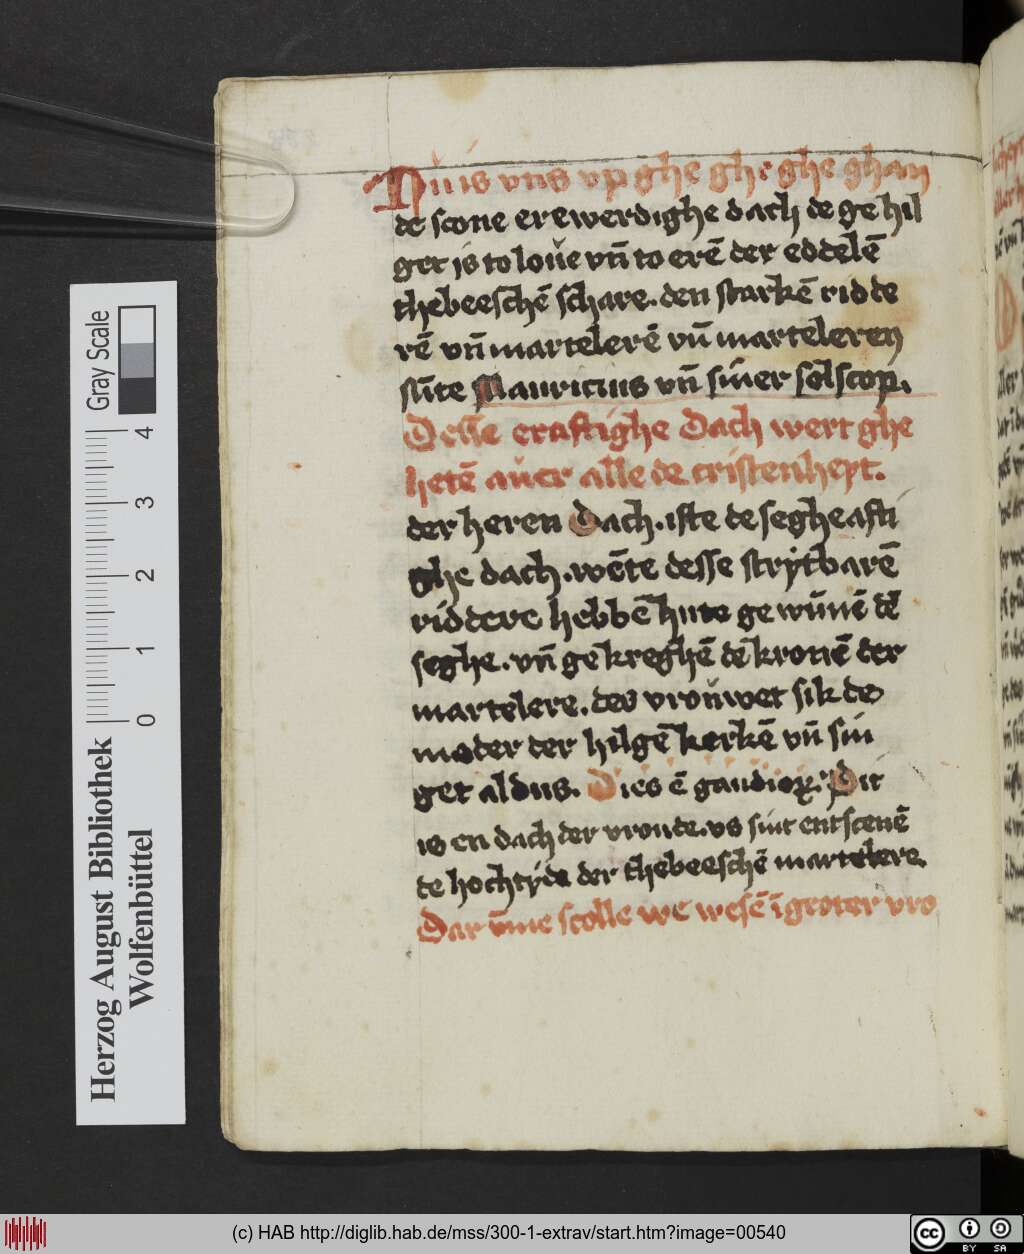 Nu is vns vp ghe ghe ghe ghan
de scone erewerdighe dach de ge hil
get is to loue vn̄ to erē der eddelē
thebeeschē schare. den starkē ridde
rē vn̄ martelerē vn̄ marteleren
sūte Mauricius vn̄ siner sēlscop.
Desse eraftighe Dach wert ghe
hetē auer alle de cristenheyt.
der heren Dach. iste de segheafti
ghe dach. wēte desse strytbarē
riddere hebbē hute gewūnē dē
seghe. vn̄ gekreghē dē kronē der
martelere. des vrouwet sik de
moder der hilgē kerkē vn̄ sin
get aldus. Dies ē gaudioꝝ. Dit
is en dach der vroude. vs sint entscenē
de hochtyde der thebeeschē martelere.
Dar v̄me scolle we wesē ī groter vro
Gray Scale
4
3
2
1
0
Herzog August Bibliothek
Wolfenbüttel
(c) HAB http://diglib.hab.de/mss/300-1-extrav/start.htm?image=00540
cc
BY SA